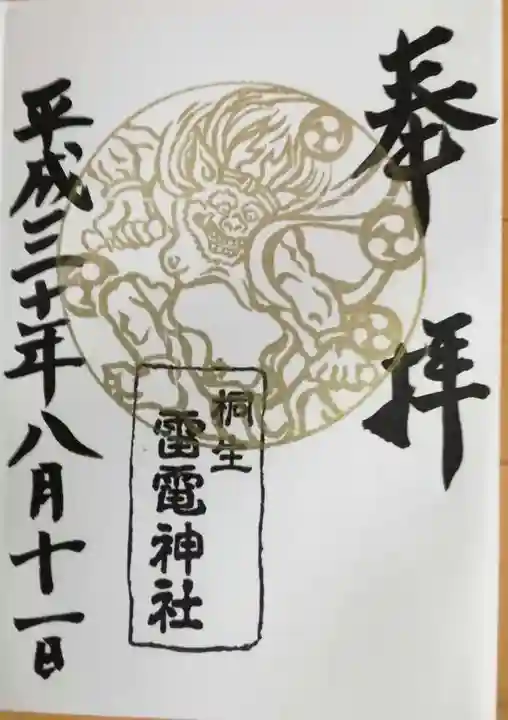 奉拝
桐生
雷電神社
平成三十年八月十一日